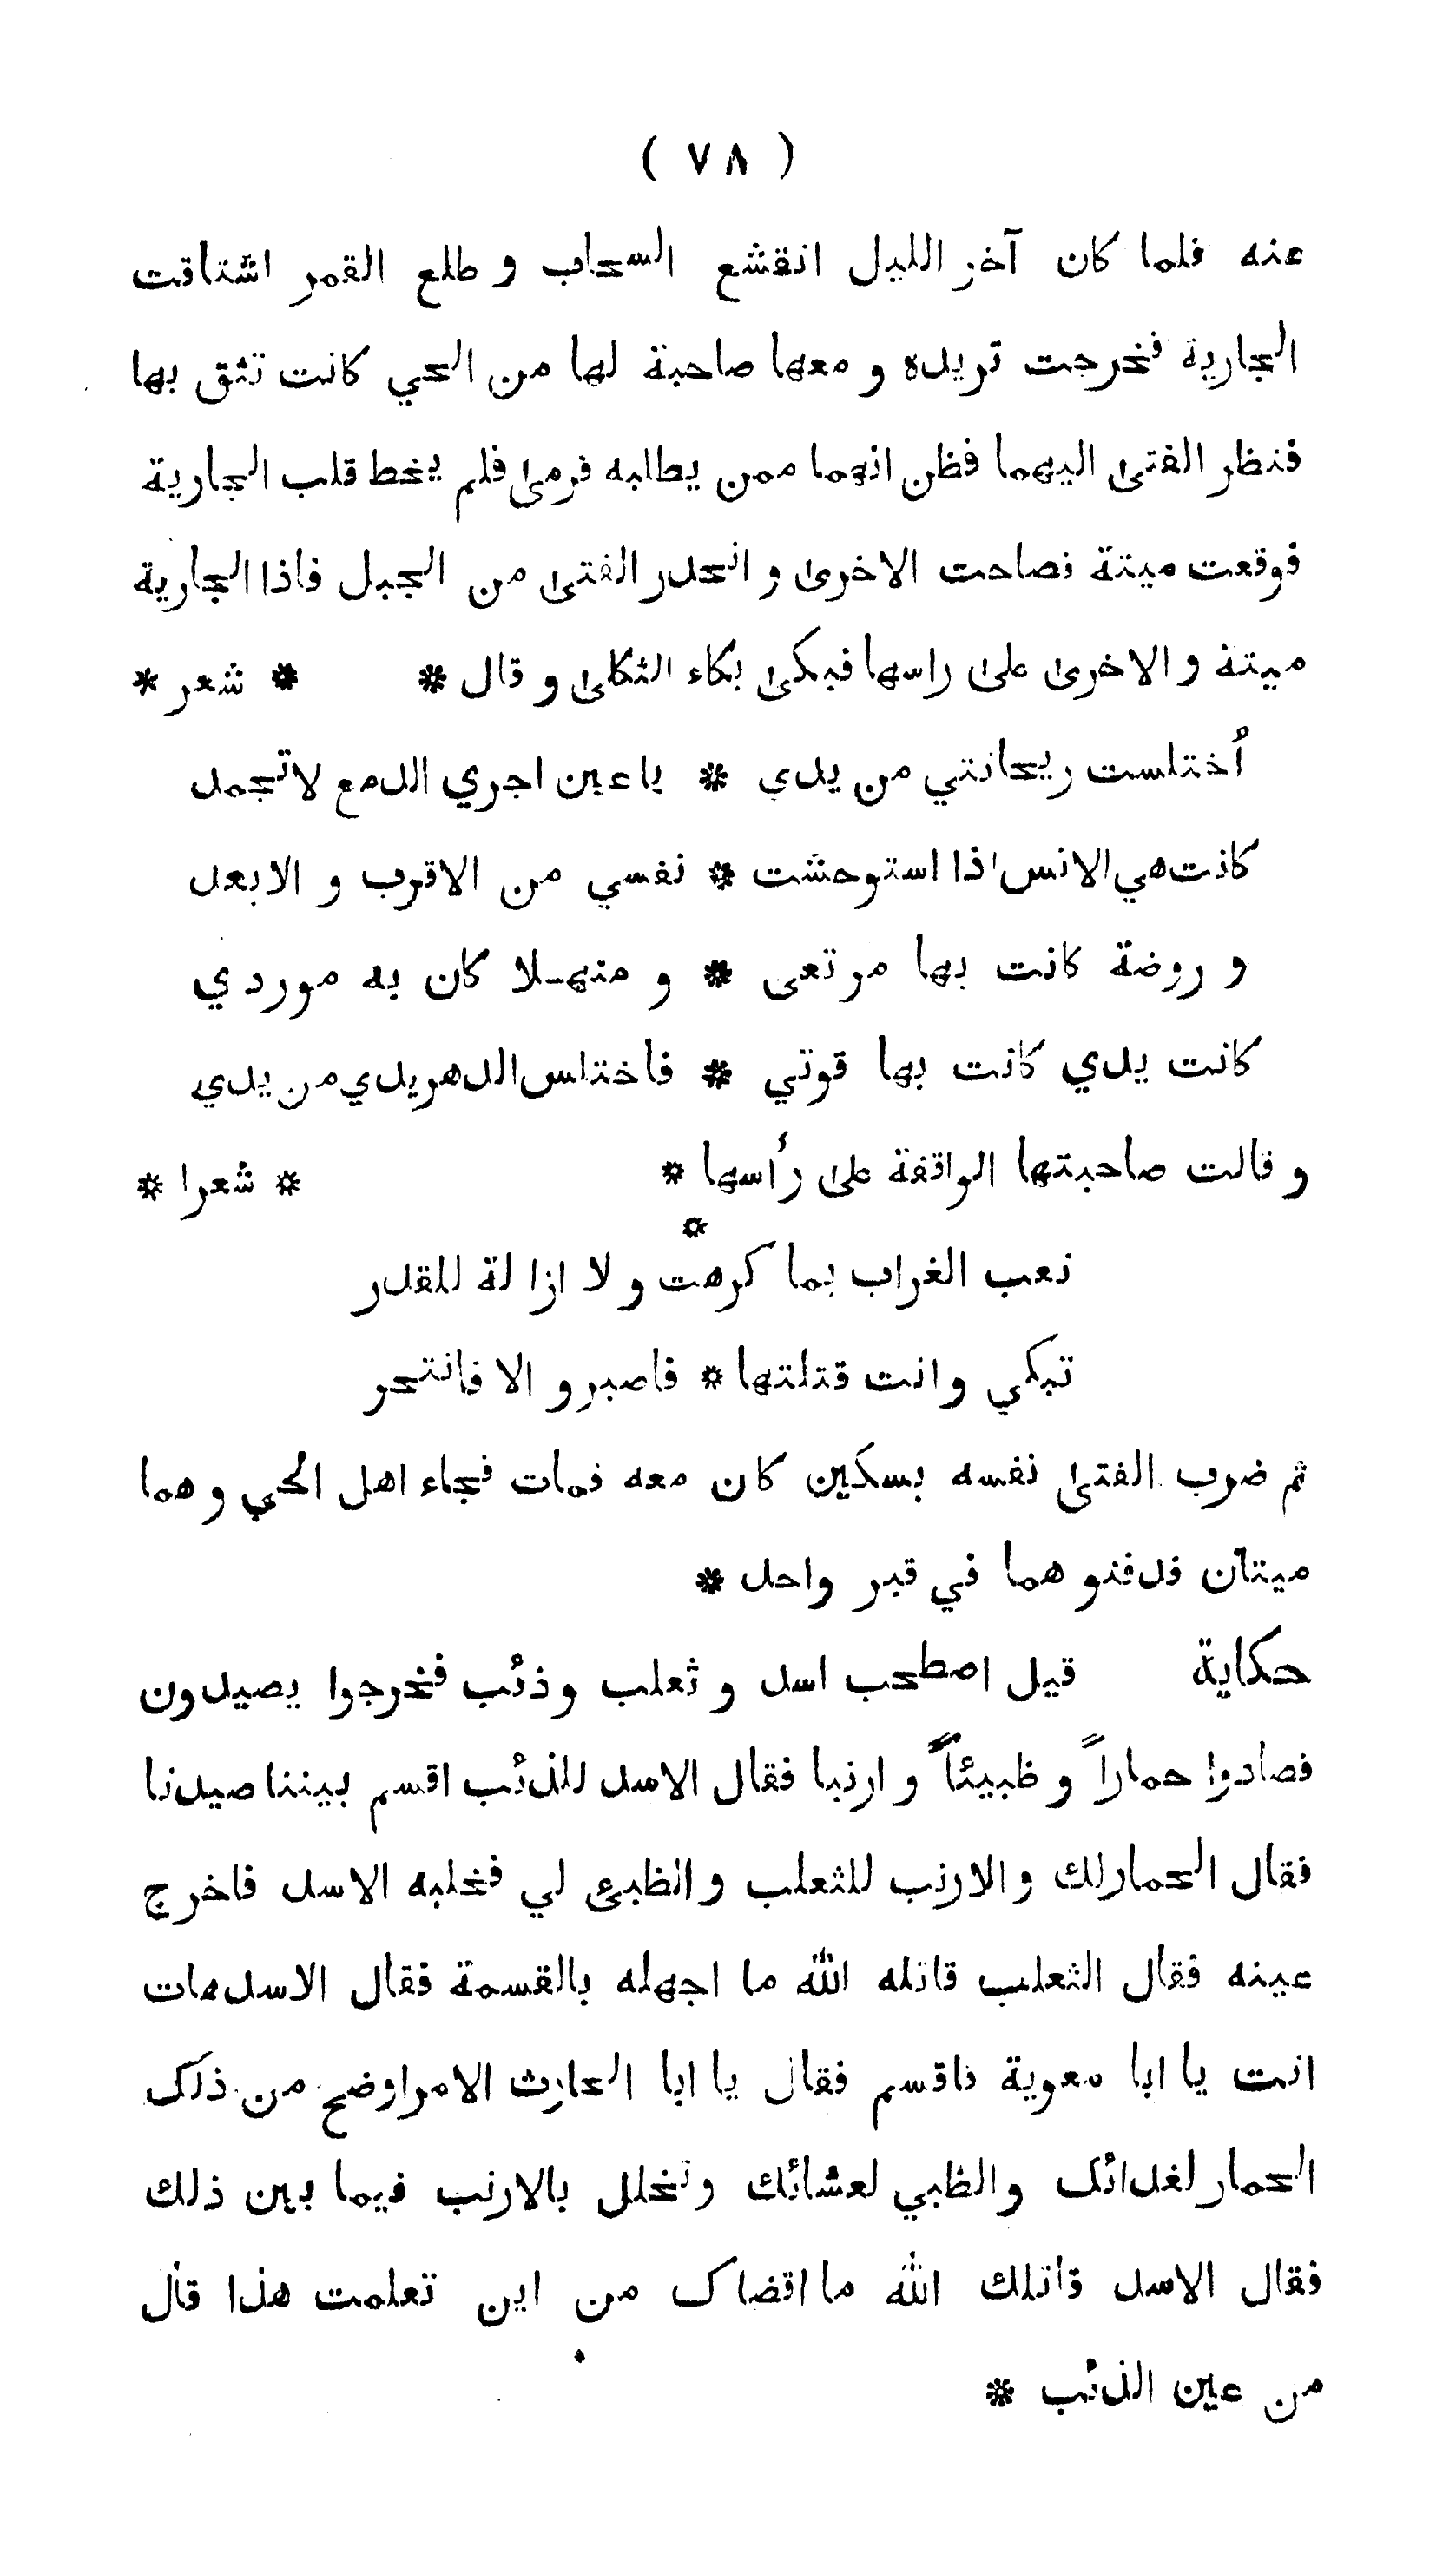 ( ٧٨ )
عنه فلما كان آخر الليل انقشع السحاب و طلع القمر اشتاقت
الجارية فخرجت تريده و معها صاحبة لها من الحي كانت تثق بها
فنظر الفتى اليهما فظن انهما ممن يطالبه فرمى فلم يخط قلب الجارية
فوقعت ميتة فصاحت الاخرى و انحدر الفتى من الجبل فاذا الجارية
ميتة و الاخرى على راسها فبكى بكاء الثكلى و قال * * شعر *
أختلست ريحانتي من يدي * يا عين اجري الدمع لا تجمد
كانت هي الانس اذا استوحشت * نفسي من الاقرب و الابعد
و روضة كانت بها مرتعى * و منهلا كان به موردي
كانت يدي كانت بها قوتي * فاختلس الدهر يدي من يدي
و قالت صاحبتها الواقفة على رأسها * * شعرا *
نعب الغراب بما كرهت * و لا ازالة للقدر
تبكي و انت قتلتها * فاصبر و الا فانتحر
ثم ضرب الفتى نفسه بسكين كان معه فمات فجاء اهل الحي و هما
ميتان فدفنو هما في قبر واحد *
حكاية قيل اصطحب اسد و ثعلب و ذئب فخرجوا يصيدون
فصادوا حماراً و ظبيئاً و ارنبا فقال الاسد للذئب اقسم بيننا صيدنا
فقال الحمار لك و الارنب للثعلب و الظبئ لي فخلبه الاسد فاخرج
عينه فقال الثعلب قاتله الله ما اجهله بالقسمة فقال الاسد هات
انت يا ابا معوية فاقسم فقال يا ابا الحارث الامر اوضح من ذلك
الحمار لغدائك و الظبي لعشائك و تخلل بالارنب فيما بين ذلك
فقال الاسد قاتلك الله ما اقضاك من اين تعلمت هذا قال
من عين الذئب *